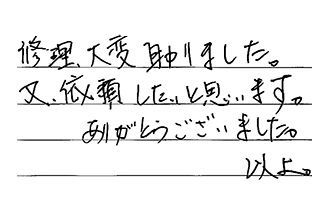 修理、大変助りました。
又、依頼したいと思います。
ありがとうございました。
以上。